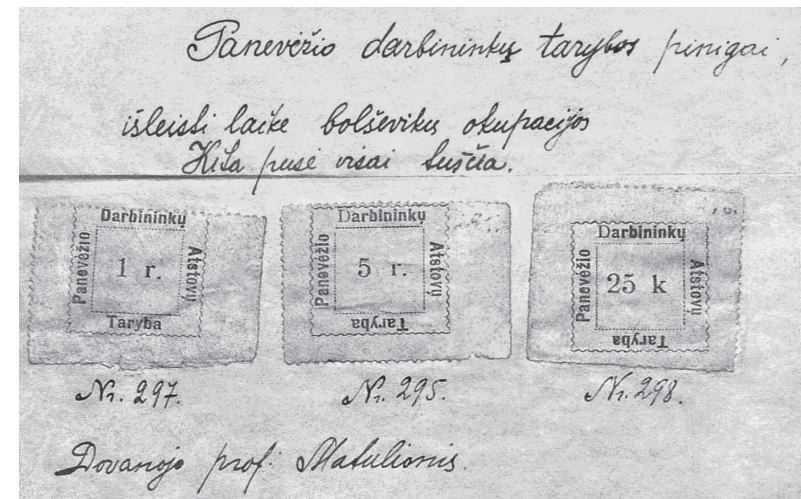 Panevėžio darbininkų tarybos pinigai,
išleisti laike bolševikų okupacijos
Kita pusė visai tuščia.
Darbininkų
Panevėžio
1 r.
Atstovų
Taryba
Darbininkų
Panevėžio
5 r.
Atstovų
Taryba
Darbininkų
Panevėžio
25 k
Atstovų
Taryba
Nr. 297.
Nr. 295.
Nr. 298.
Dovanojo prof. Matulionis.